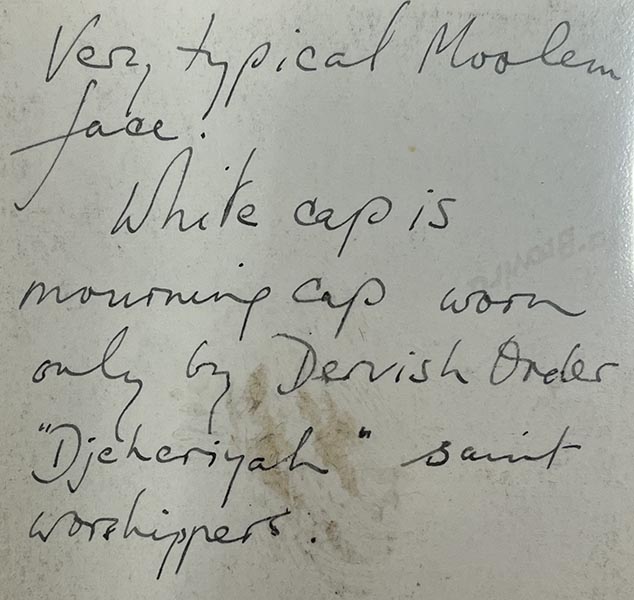 Very typical Moslem
face.
White cap is
mourning cap worn
only by Dervish Order
"Djeheriyah" saint
worshippers.